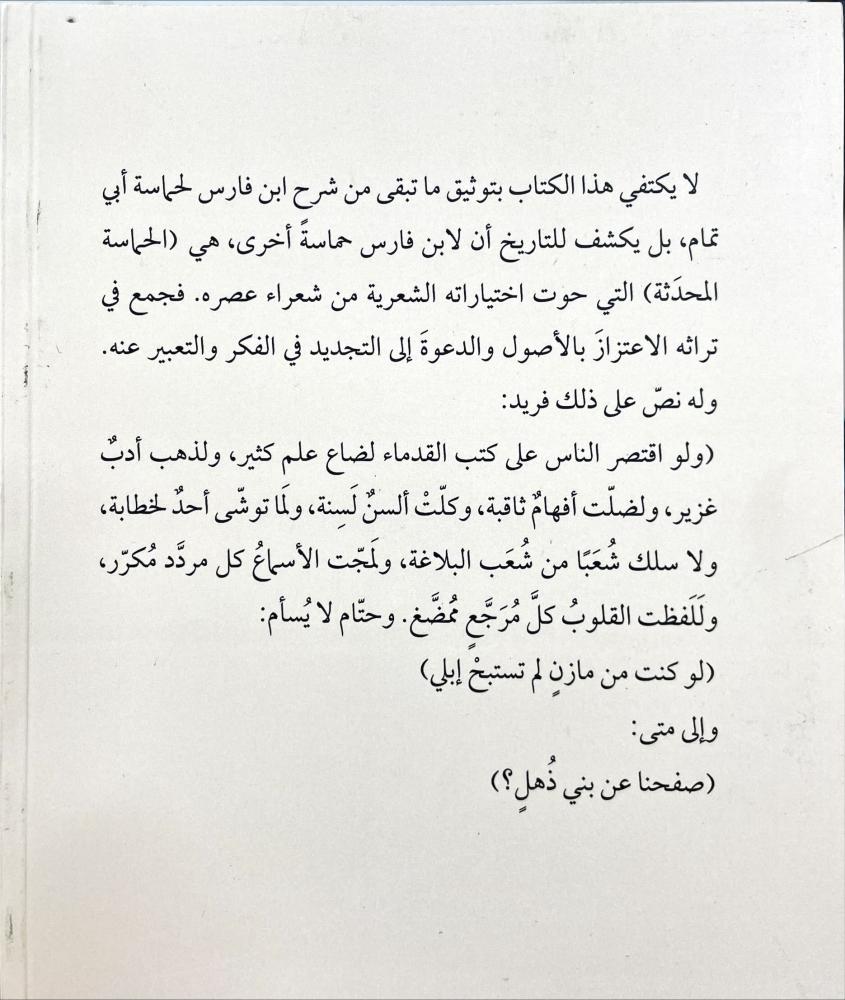 لا يكتفي هذا الكتاب بتوثيق ما تبقى من شرح ابن فارس لحماسة أبي
تمام، بل يكشف للتاريخ أن لابن فارس حماسةً أخرى، هي (الحماسة
المحدَثة) التي حوت اختياراته الشعرية من شعراء عصره. فجمع في
تراثه الاعتزازَ بالأصول والدعوةَ إلى التجديد في الفكر والتعبير عنه.
وله نصّ على ذلك فريد:
(ولو اقتصر الناس على كتب القدماء لضاع علم كثير، ولذهب أدبٌ
غزير، ولضلّت أفهامٌ ثاقبة، وكلّتْ ألسنٌ لَسِنة، ولَما توشّى أحدٌ لخطابة،
ولا سلك شُعَبًا من شُعَب البلاغة، ولَمجّت الأسماعُ كل مردَّد مُكرّر،
ولَلَفظت القلوبُ كلَّ مُرَجَّعٍ مُمضَّغ. وحتّام لا يُسأم:
(لو كنت من مازنٍ لم تستبحْ إبلي)
وإلى متى:
(صفحنا عن بني ذُهلٍ؟)